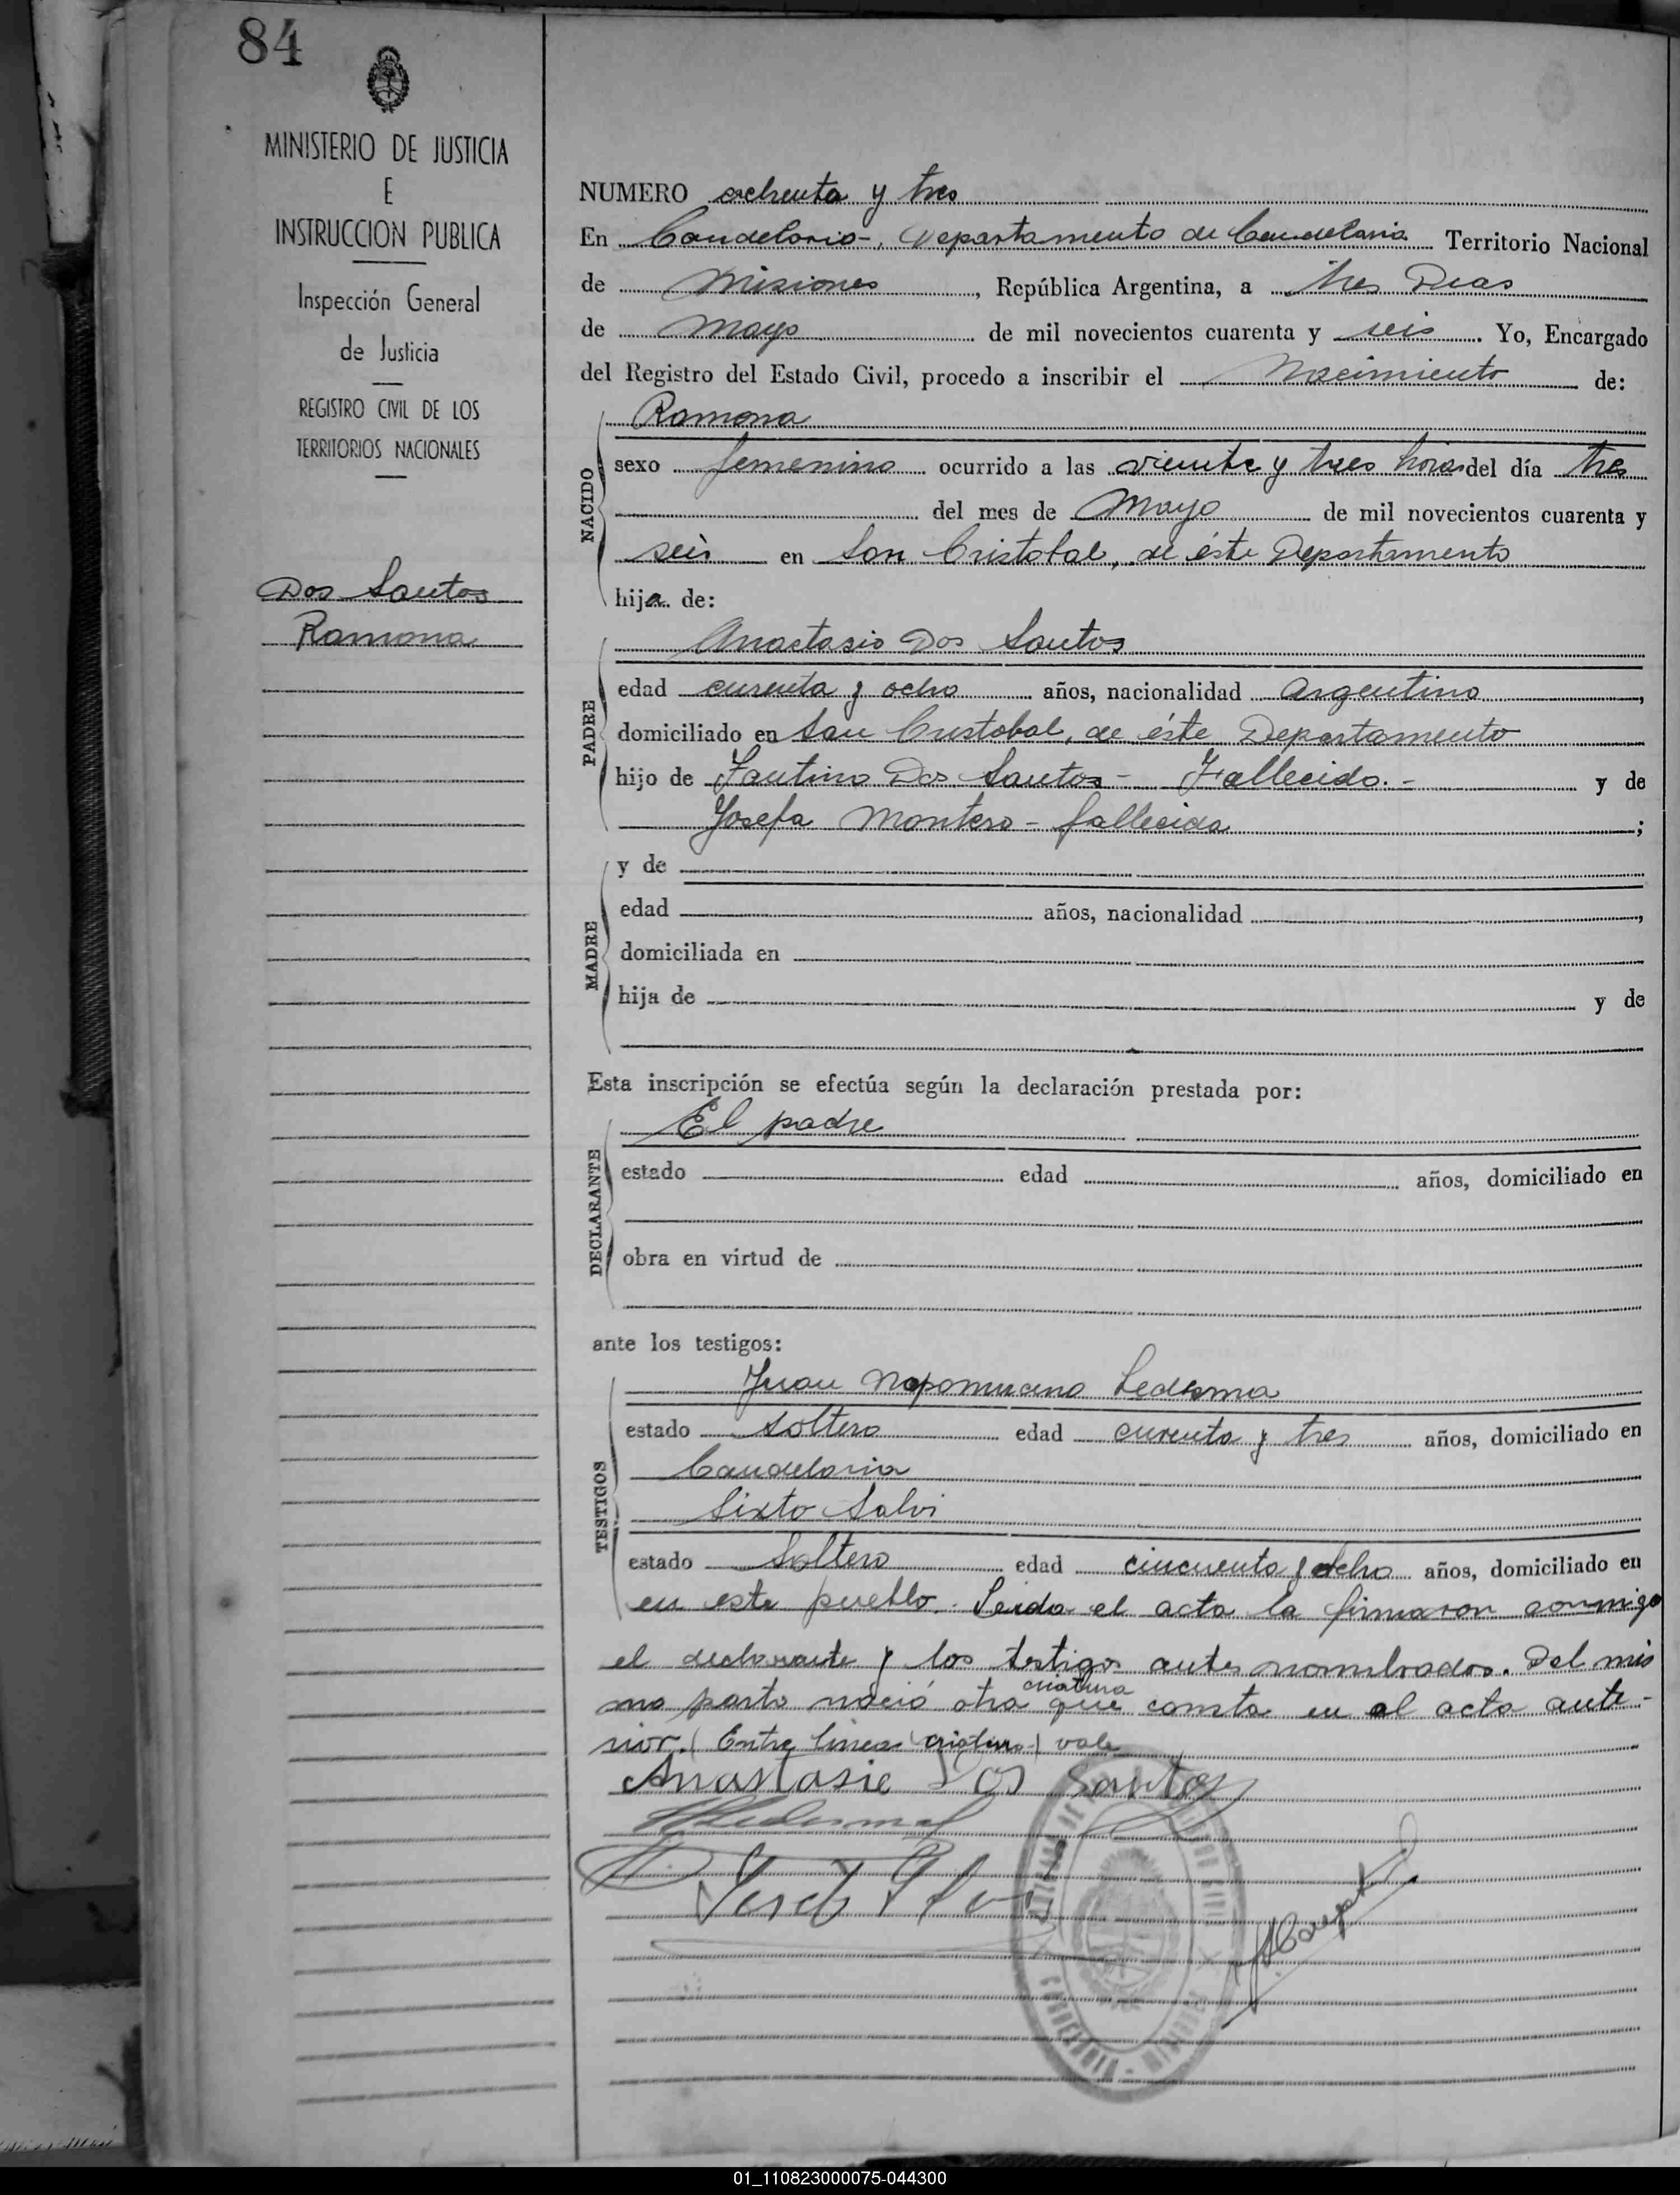 84
MINISTERIO DE JUSTICIA
E
INSTRUCCION PUBLICA
Inspección General
de Justicia
REGISTRO CIVIL DE LOS
TERRITORIOS NACIONALES
Dos Santos
Ramona
NUMERO ochenta y tres
En Candelaria-, Departamento de Candelaria Territorio Nacional
de Misiones, República Argentina, a tres Dias
de Mayo de mil novecientos cuarenta y seis. Yo, Encargado
del Registro del Estado Civil, procedo a inscribir el Nacimiento de:
NACIDO
Ramona
sexo femenino ocurrido a las viente y tres horas del día tres
del mes de Mayo de mil novecientos cuarenta y
seis en San Cristobal, de éste Departamento
hija de:
PADRE
Anastasio Dos Santos
edad curenta y ocho años, nacionalidad Argentino,
domiciliado en San Cristobal, de éste Departamento
hijo de Fautino Dos Santos - Fallecido.- y de
Josefa Montero - fallecida;
MADRE
y de
edad años, nacionalidad,
domiciliada en
hija de y de
Esta inscripción se efectúa según la declaración prestada por:
DECLARANTE
El padre
estado edad años, domiciliado en
obra en virtud de
ante los testigos:
TESTIGOS
Juan Nepomuceno Ledesma
estado soltero edad curenta y tres años, domiciliado en
Candelaria
Sixto Salvi
estado Soltero edad cincuenta y ocho años, domiciliado en
en este pueblo. Leida el acta la firmaron conmigo
el declarante y los testigos antes nombrados. Del mis
criatura
mo parto nació otra que consta en el acta ante-
rior. (Entre lineas (criatura) vale
Anastasio Dos Santos
01_110823000075-044300